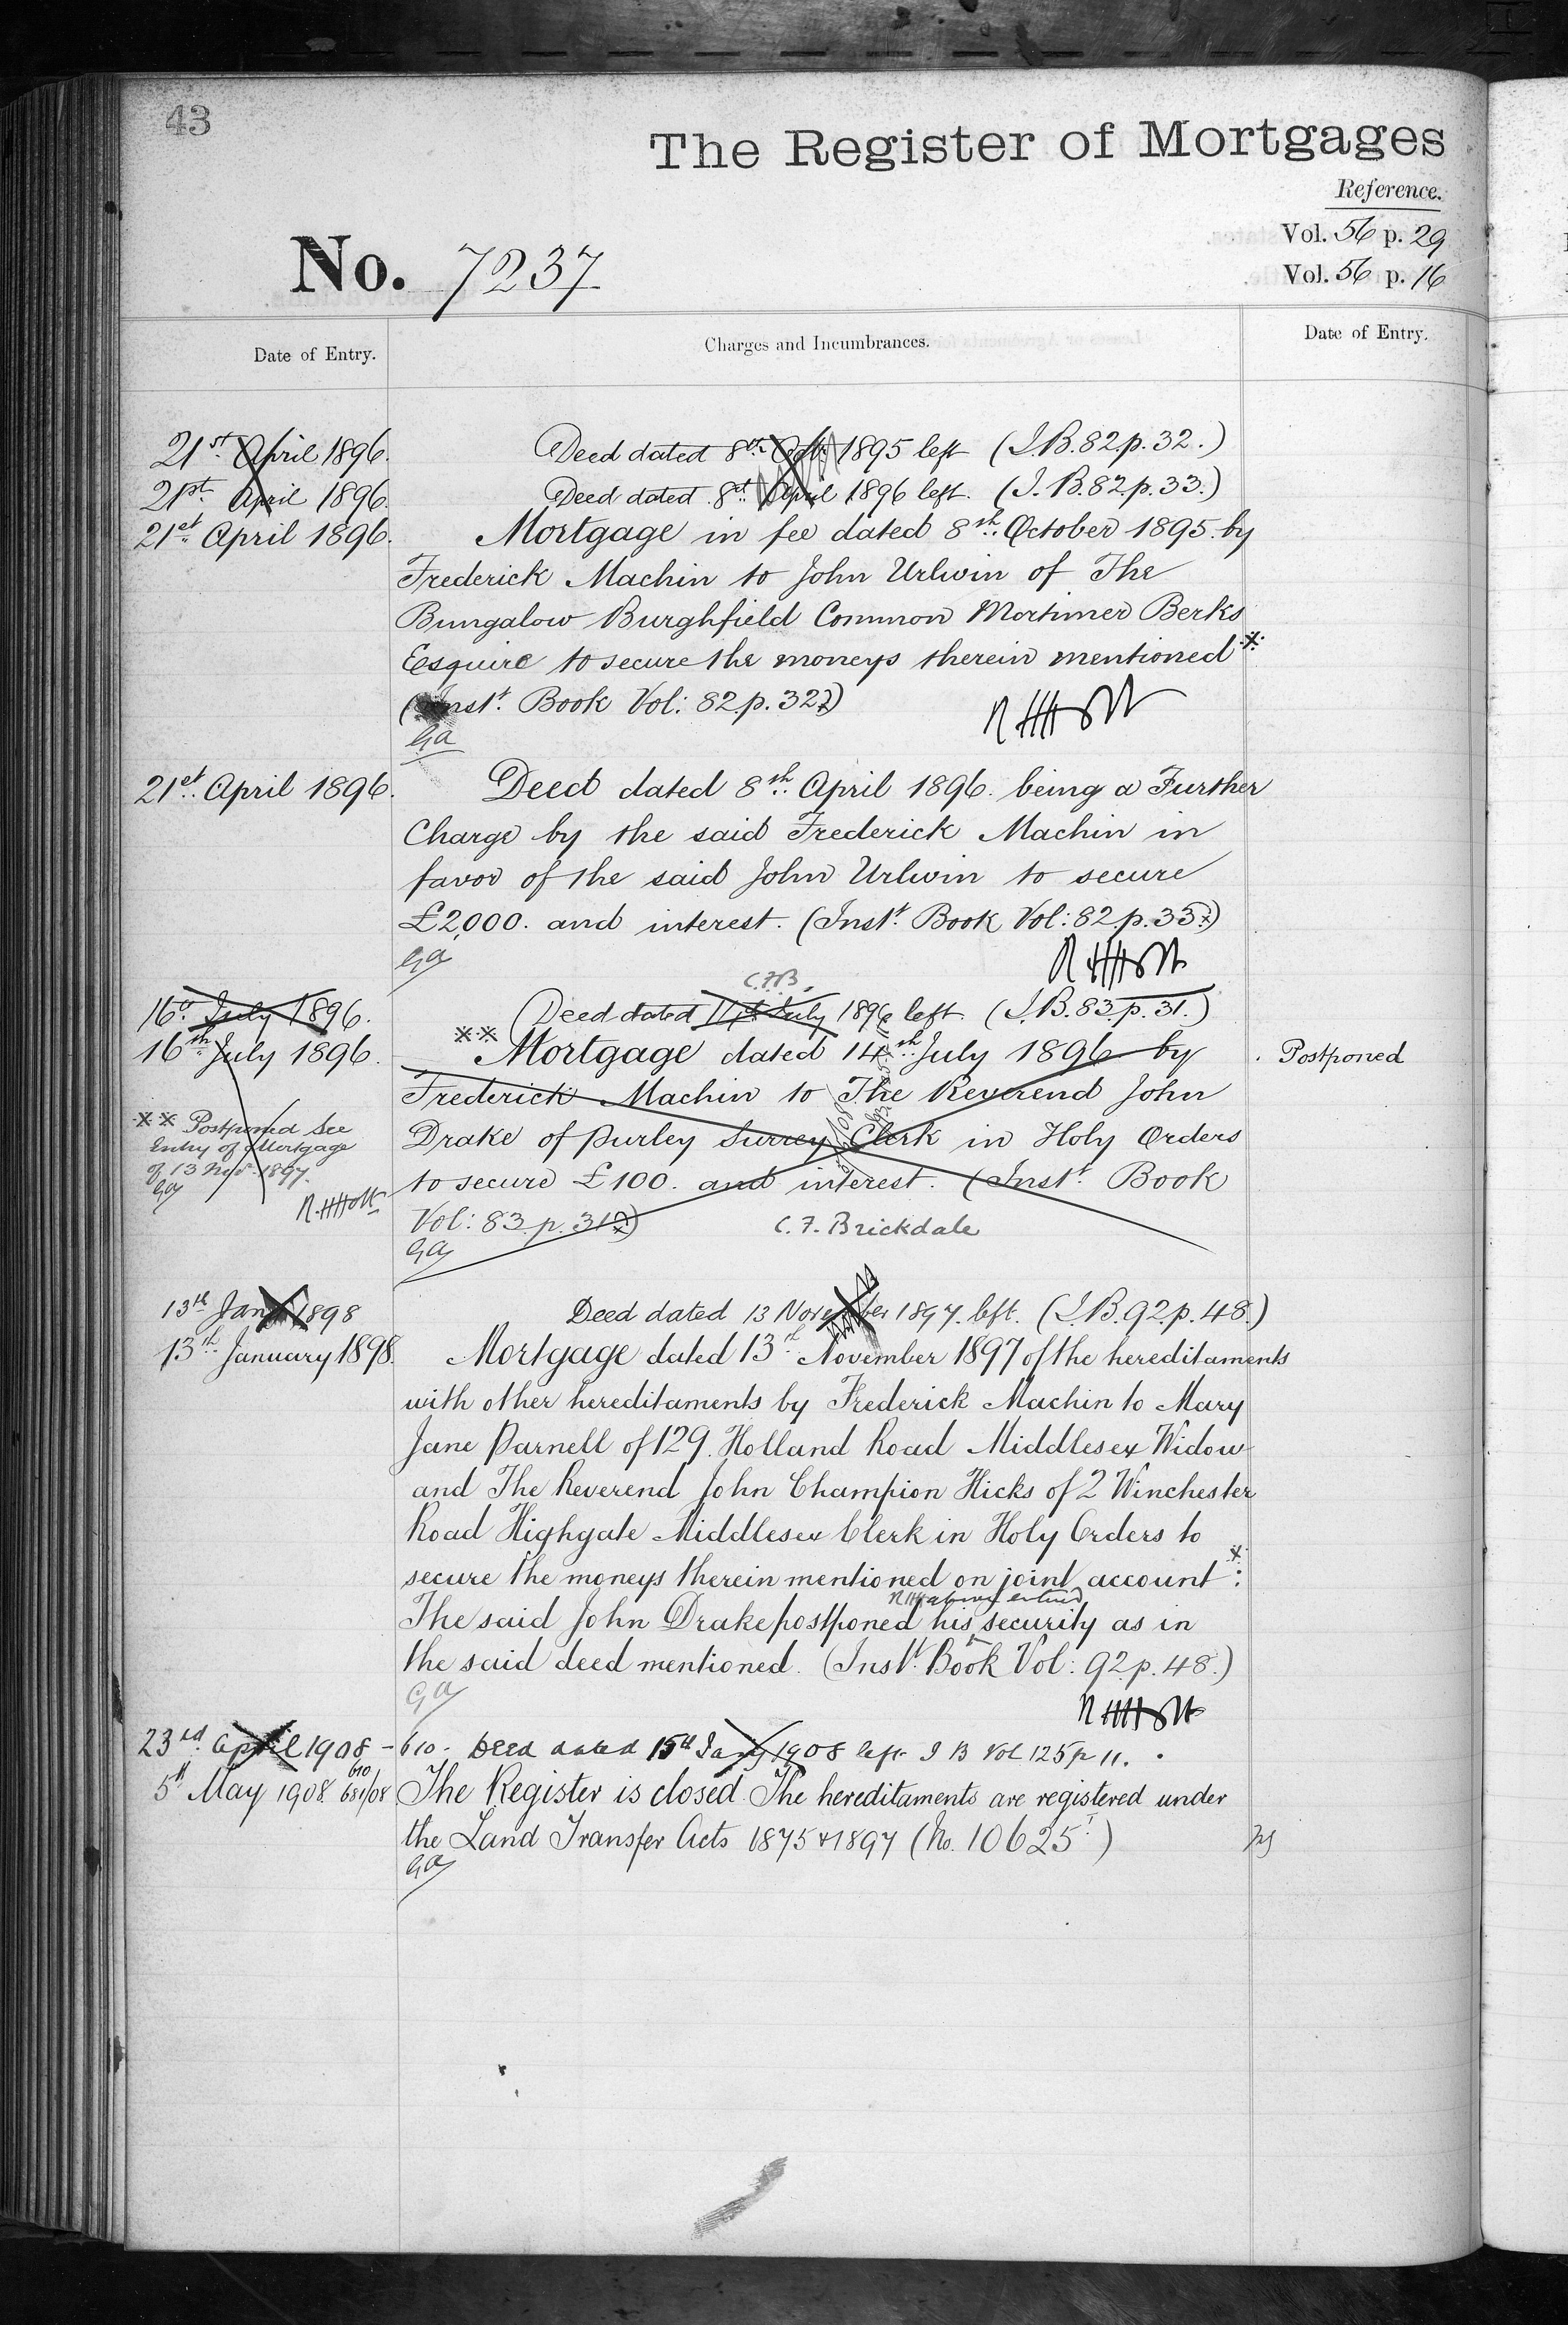 43
The Register of Mortgages
Reference.
Vol. 56 p. 29
Vol. 56 p. 16
No. 7237
Date of Entry.
Charges and Incumbrances.
Date of Entry.
21st April 1896. Deed dated 8th Octr 1895 left (I.B. 82 p. 32.)
21st April 1896. Deed dated 8th April 1896 left. (I.B. 82 p. 33.)
21st April 1896. Mortgage in fee dated 8th October 1895 by
Frederick Machin to John Urlwin of The
Bungalow Burghfield Common Mortimer Berks
Esquire to secure the moneys therein mentioned
(Inst. Book Vol: 82. p. 32)
GA
21st April 1896. Deed dated 8th April 1896. being a Further
Charge by the said Frederick Machin in
favor of the said John Urlwin to secure
£2,000. and interest. (Inst. Book Vol: 82. p. 33)
GA
C.F.B.
16th July 1896. Deed dated 14th July 1896 left. (I.B. 83. p. 31.)
16th July 1896. ** Mortgage dated 14th July 1896 by
Postponed
Frederick Machin to The Reverend John
** Postponed See
Drake of Purley Surrey Clerk in Holy Orders
Entry of Mortgage
of 13 Novr 1897.
GA
to secure £100. and interest. (Inst. Book
Vol: 83. p. 31)
C. F. Brickdale
GA
13th Jany 1898 Deed dated 13 November 1897. left. (I.B. 92 p. 48.)
13th January 1898. Mortgage dated 13th November 1897 of the hereditaments
with other hereditaments by Frederick Machin to Mary
Jane Parnell of 129. Holland Road Middlesex Widow
and The Reverend John Champion Hicks of 2 Winchester
Road Highgate Middlesex Clerk in Holy Orders to
secure the moneys therein mentioned on joint account:
above entered
The said John Drake postponed his security as in
the said deed mentioned. (Inst. Book Vol: 92. p. 48.)
GA
23rd April 1908 - 610. Deed dated 15th Jany 1908 left I B Vol 125 p 11.
610
5th May 1908 681/08 The Register is closed. The hereditaments are registered under
the Land Transfer Acts 1875 & 1897 (No. 10625.)
GA